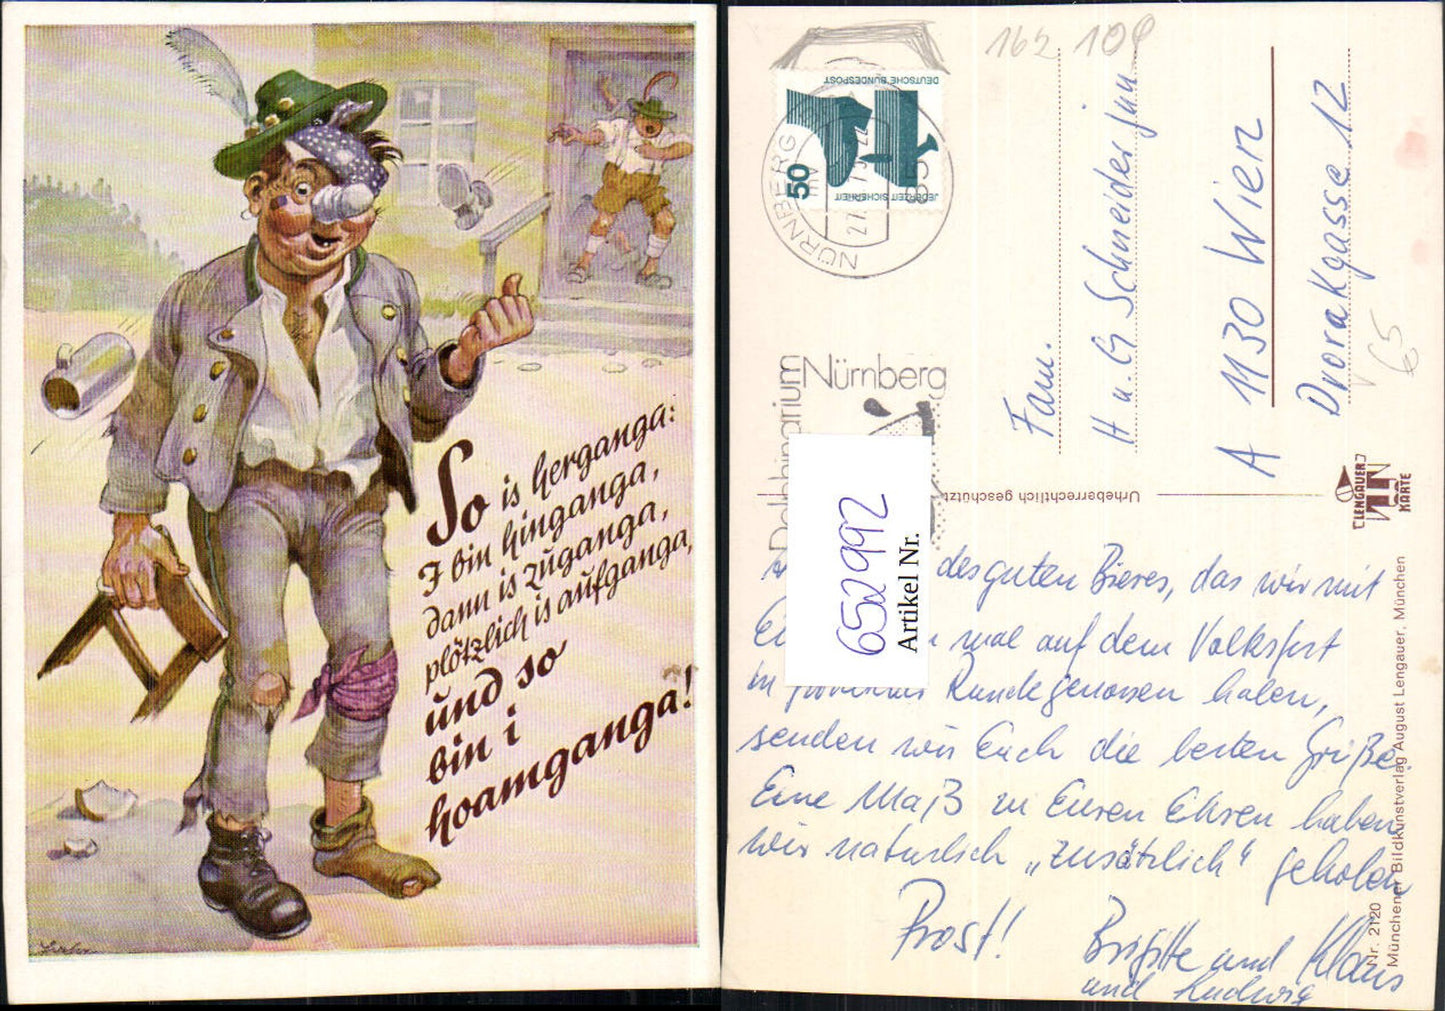 So is herganga:
I bin hinganga,
dann is zuganga,
plötzlich is aufganga,
und so
bin i
hoamganga!
162 108
DEUTSCHE BUNDESPOST
50
JEDERZEIT SICHERHEIT
NÜRNBERG
85
Nürnberg
Delphinarium
Fam.
H u. G Schneider jun
A 1130 Wien
Dvorakgasse 12
65
Urheberrechtlich geschützt
LENGAUER
KARTE
652992
Artikel Nr.
des guten Bieres, das wir mit
mal auf dem Volksfest
in Rundegenossen haben,
senden wir Euch die besten Grüße
Eine Maß zu Euren Ehren haben
wir natürlich „zusätzlich“ geholen
Prost!
Brigitte und Klaus
und Ludwig
Nr. 2120
Münchener Bildkunstverlag August Lengauer, München